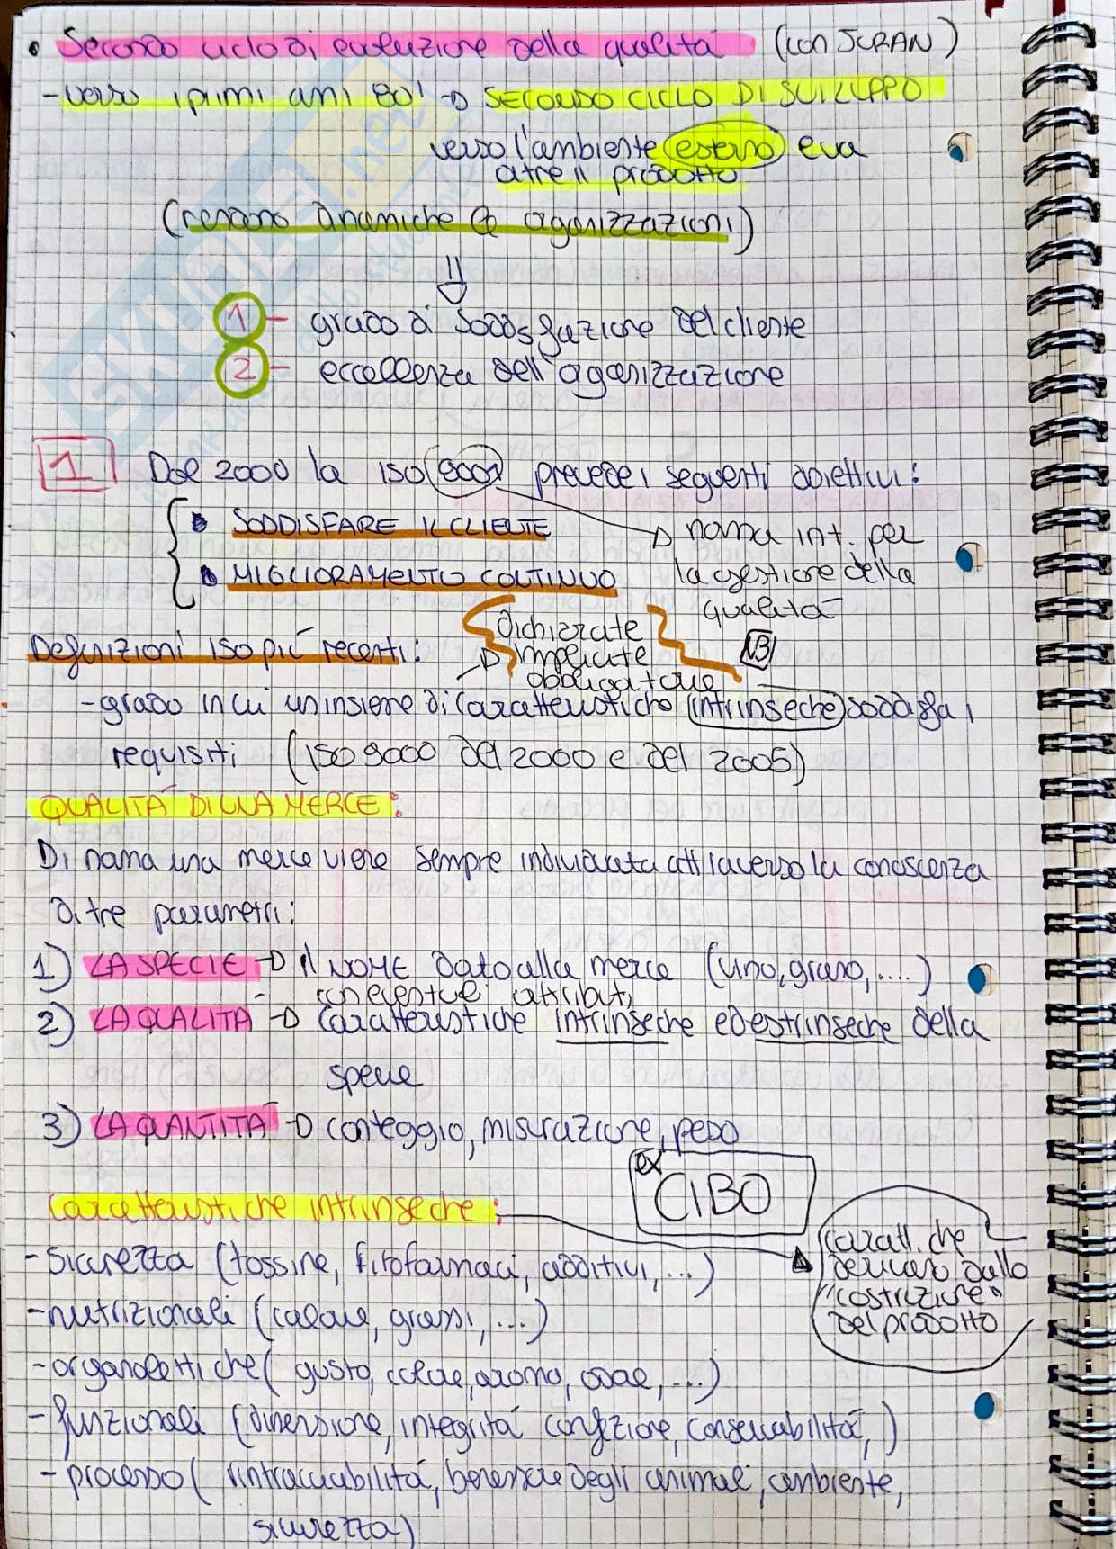 • Secondo ciclo di evoluzione della qualità (con JURAN)
- verso i primi anni 80' → SECONDO CICLO DI SVILUPPO
verso l'ambiente esterno e va
oltre il prodotto
(rendono dinamiche le organizzazioni)
⇓
1 - grado di soddisfazione del cliente
2 - eccellenza dell'organizzazione
1 Dal 2000 la ISO 9001 prevede i seguenti obiettivi:
• SODDISFARE IL CLIENTE
→ norma int. per
• MIGLIORAMENTO CONTINUO
la gestione della
qualità
dichiarate
Definizioni ISO più recenti:
→ implicite
NB
obbligatorie
- grado in cui un insieme di caratteristiche intrinseche soddisfa i
requisiti (ISO 9000 del 2000 e del 2005)
QUALITÀ DI UNA MERCE:
Di norma una merce viene sempre individuata attraverso la conoscenza
di tre parametri:
1) LA SPECIE → il NOME dato alla merce (vino, grano, ....)
con eventuali attributi
2) LA QUALITÀ → caratteristiche intrinseche ed estrinseche della
specie
3) LA QUANTITÀ → conteggio, misurazione, peso
ex CIBO
Caratteristiche intrinseche:
caratt. che
derivano dalla
costruzione
del prodotto
- sicurezza (tossine, fitofarmaci, additivi, ...)
- nutrizionali (calorie, grassi, ...)
- organolettiche (gusto, colore, aroma, odore, ...)
- funzionali (dimensione, integrità confezione, conservabilità, )
- processo (rintracciabilità, benessere degli animali, ambiente,
sicurezza)
SKUOLA.net